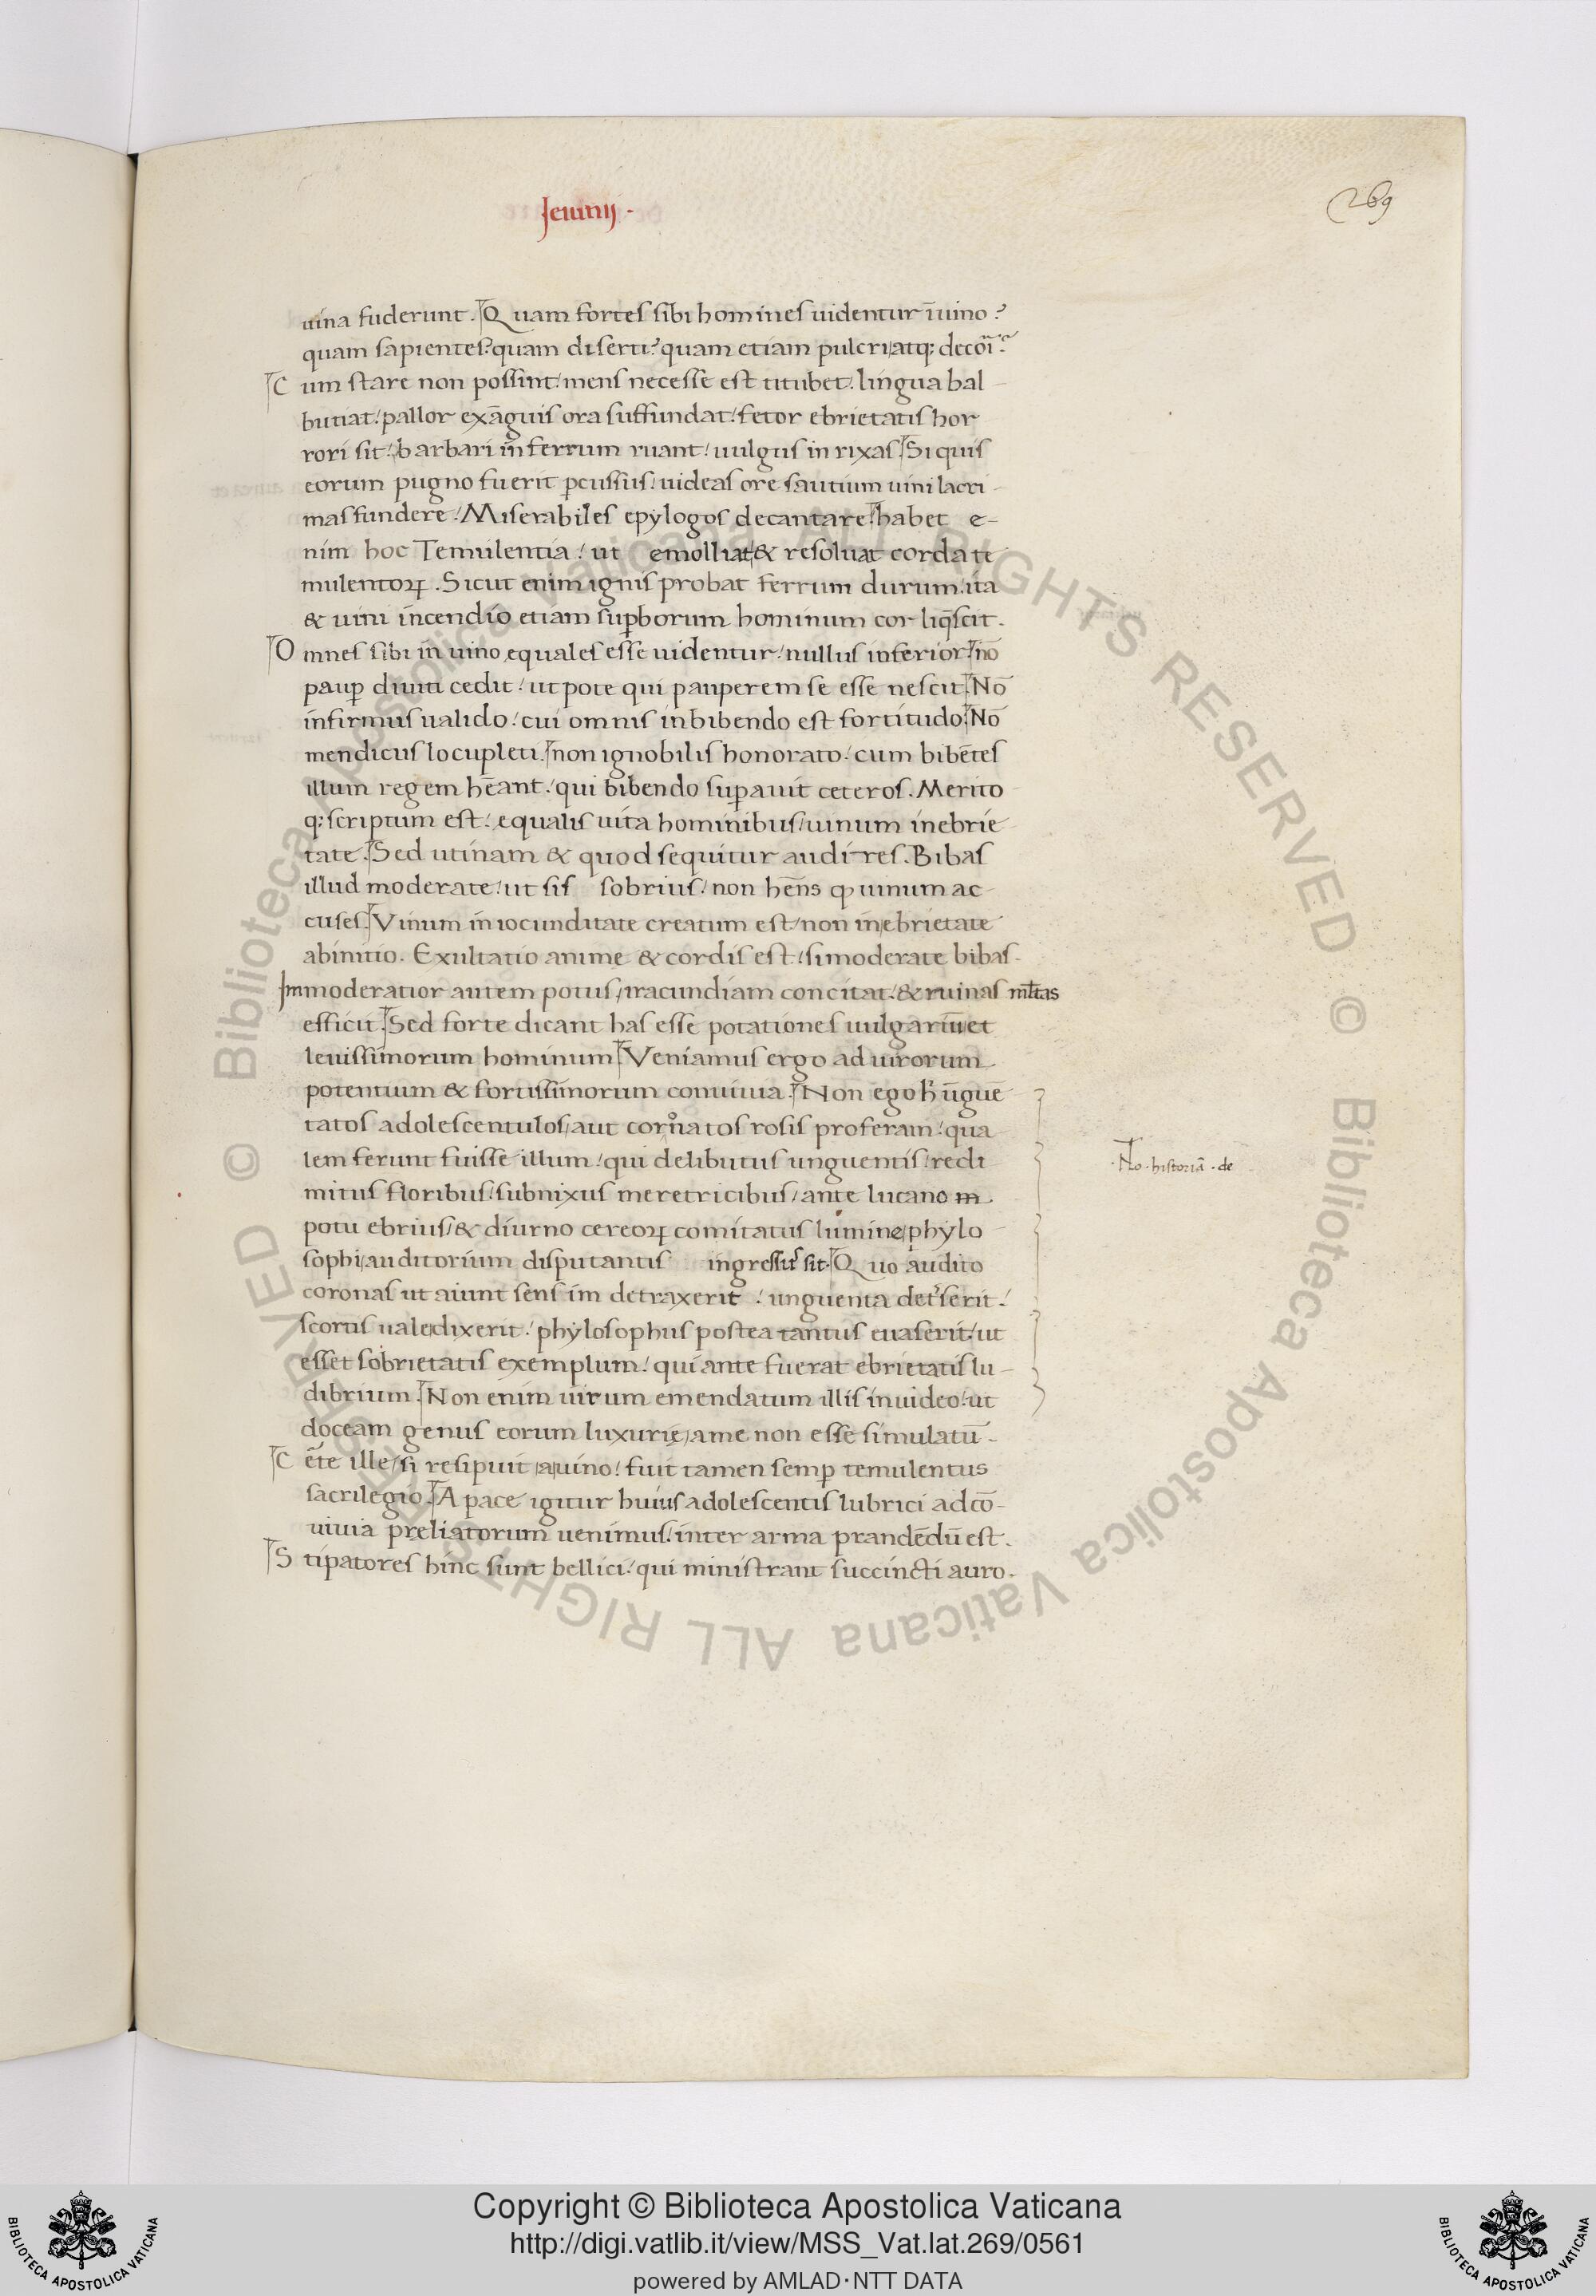 Ieiunij .
269
uina fuderunt . Quam fortes sibi homines uidentur ī uino ?
quam sapientes? quam diserti? quam etiam pulcri atq; decori ?
Cum stare non possint / mens necesse est titubet . lingua bal-
butiat / pallor exāguis ora suffundat / fetor ebrietatis hor
rori sit / barbari in ferrum ruant / uulgus in rixas . Si quis
eorum pugno fuerit ꝑcussus / uideas ore sautium uini lacri-
mas fundere / Miserabiles epylogos decantare . habet e-
nim hoc Temulentia / ut emolliat & resoluat corda te
mulentoꝝ . Sicut enim ignis probat ferrum durum / ita
& uini incendio etiam suꝑborum hominum cor liq̄scit .
Omnes sibi in uino ęquales esse uidentur / nullus inferior / nō
pauꝑ diuiti cedit / ut pote qui pauperem se esse nescit . Nō
infirmus ualido / cui omnis in bibendo est fortitudo . Nō
mendicus locupleti . non ignobilis honorato / cum bibētes
illum regem hēant / qui bibendo suꝑauit ceteros . Merito
q; scriptum est / ęqualis uita hominibus / uinum in ebrie-
tate . Sed utinam & quod sequitur audires . Bibas
illud moderate / ut sis sobrius / non hēns ꝙ uinum ac-
cuses . Vinum in iocunditate creatum est / non in ebrietate
ab initio . Exultatio anime & cordis est / si moderate bibas .
Immoderatior autem potus / iracundiam concitat / & ruinas ml̄tas
efficit . Sed forte dicant has esse potationes uulgariū et
leuissimorum hominum . Veniamus ergo ad uirorum
potentium & fortissimorum conuiuia . Non ego h' ūguē
tatos adolescentulos / aut cornatos rosis proferam / qua-
lem ferunt fuisse illum / qui delibutus unguentis / redi
mitus floribus / subnixus meretricibus / ante lucano m
potu ebrius / & diurno cereoꝝ comitatus lumine / phylo
sophi / auditorium disputantis ingressus sit . Quo audito
coronas ut aiunt sensim detraxerit / unguenta det'serit /
scortis ualedixerit / phylosophus postea tantus euaserit / ut
esset sobrietatis exemplum / qui ante fuerat ebrietatis lu-
dibrium . Non enim uirum emendatum illis inuideo / ut
doceam genus eorum luxurię / a me non esse simulatū .
Cēte ille / si resipuit a uino / fuit tamen semꝑ temulentus
sacrilegio . A pace igitur huius adolescentis lubrici ad cō-
uiuia preliatorum uenimus / inter arma prandēdū est .
Stipatores hinc sunt bellici / qui ministrant succincti auro .
. No . historiā . de
Biblioteca Apostolica Vaticana ALL RIGHTS RESERVED ©
Biblioteca Apostolica Vaticana ALL RIGHTS RESERVED ©
Copyright © Biblioteca Apostolica Vaticana
http://digi.vatlib.it/view/MSS_Vat.lat.269/0561
powered by AMLAD·NTT DATA
BIBLIOTECA APOSTOLICA VATICANA
BIBLIOTECA APOSTOLICA VATICANA